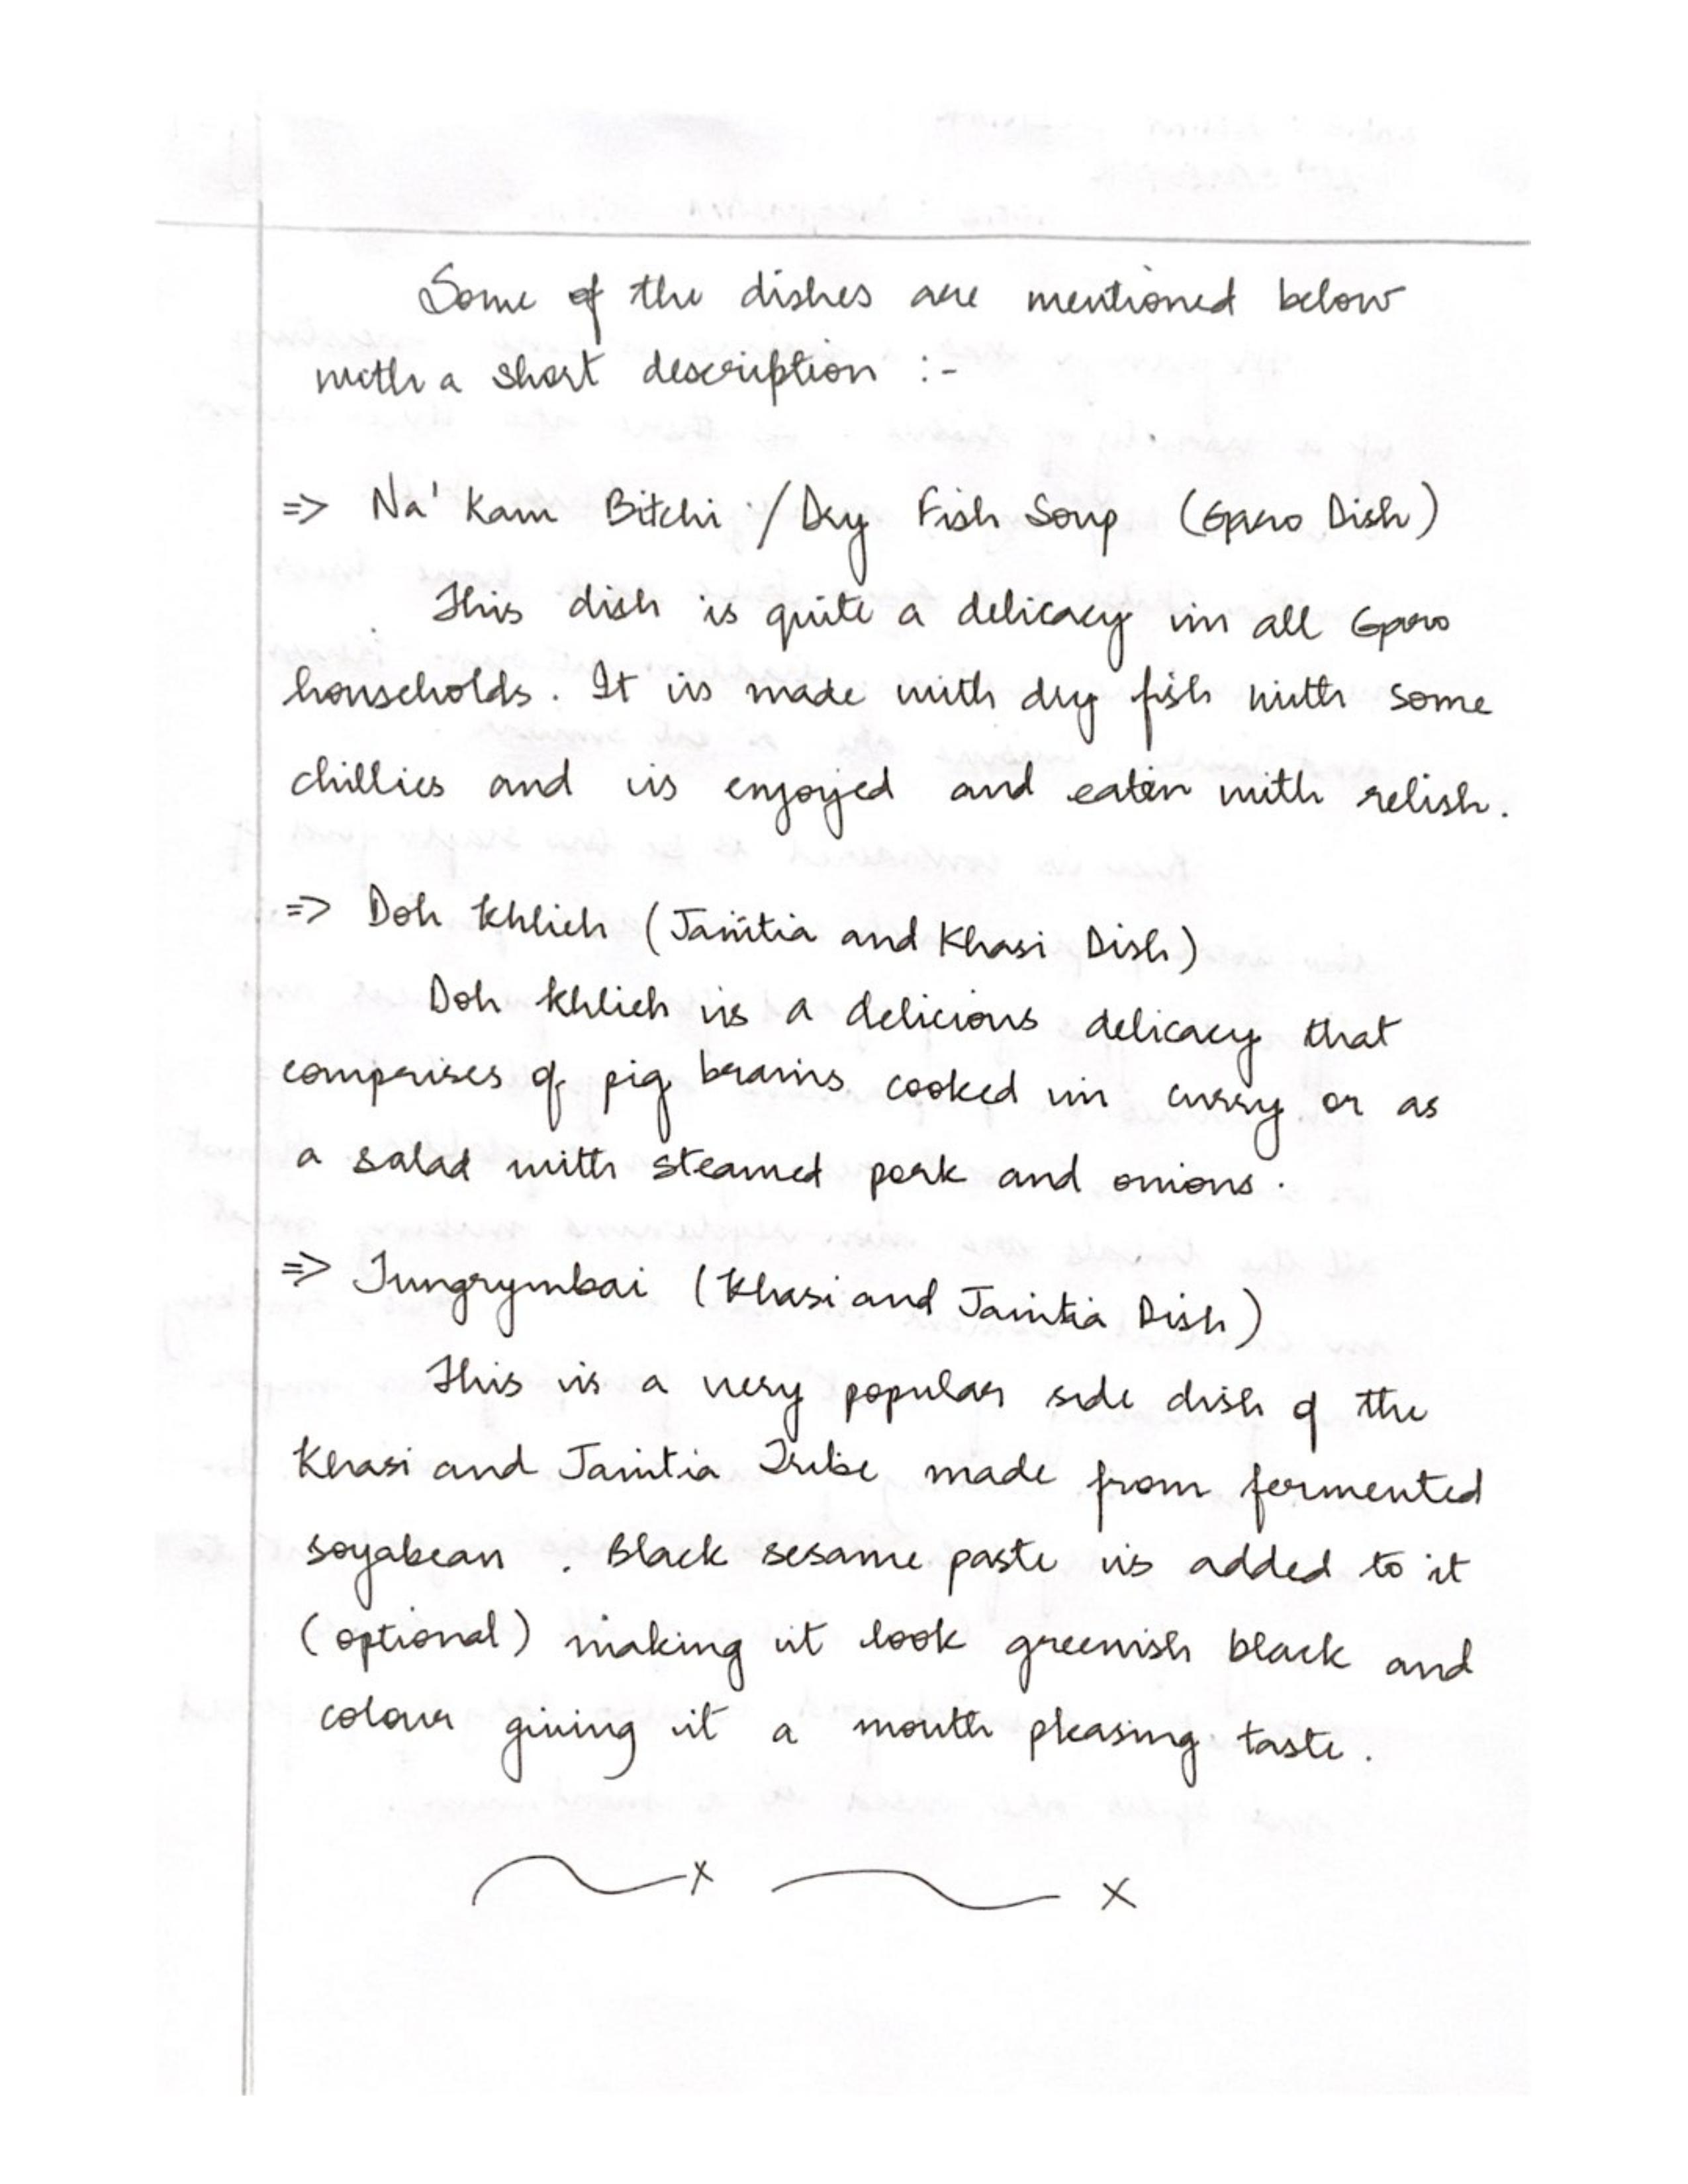 Some of the dishes are mentioned below
with a short description :-
=> Na' Kam Bitchi / Dry Fish Soup (Garo Dish)
This dish is quite a delicacy in all Garo
households. It is made with dry fish with some
chillies and is enjoyed and eaten with relish.
=> Doh Khlieh (Jaintia and Khasi Dish)
Doh Khlieh is a delicious delicacy that
comprises of pig brains cooked in curry or as
a salad with steamed pork and onions.
=> Tungrymbai (Khasi and Jaintia Dish)
This is a very popular side dish of the
Khasi and Jaintia Tribe made from fermented
soyabean . Black sesame paste is added to it
(optional) making it look greenish black and
colour giving it a mouth pleasing taste.